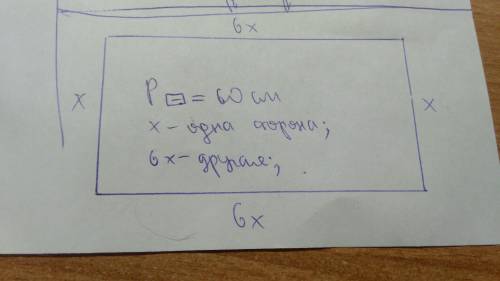 6x
x
P▭ = 60 см
x
x - одна сторона;
6x - другая;
6x